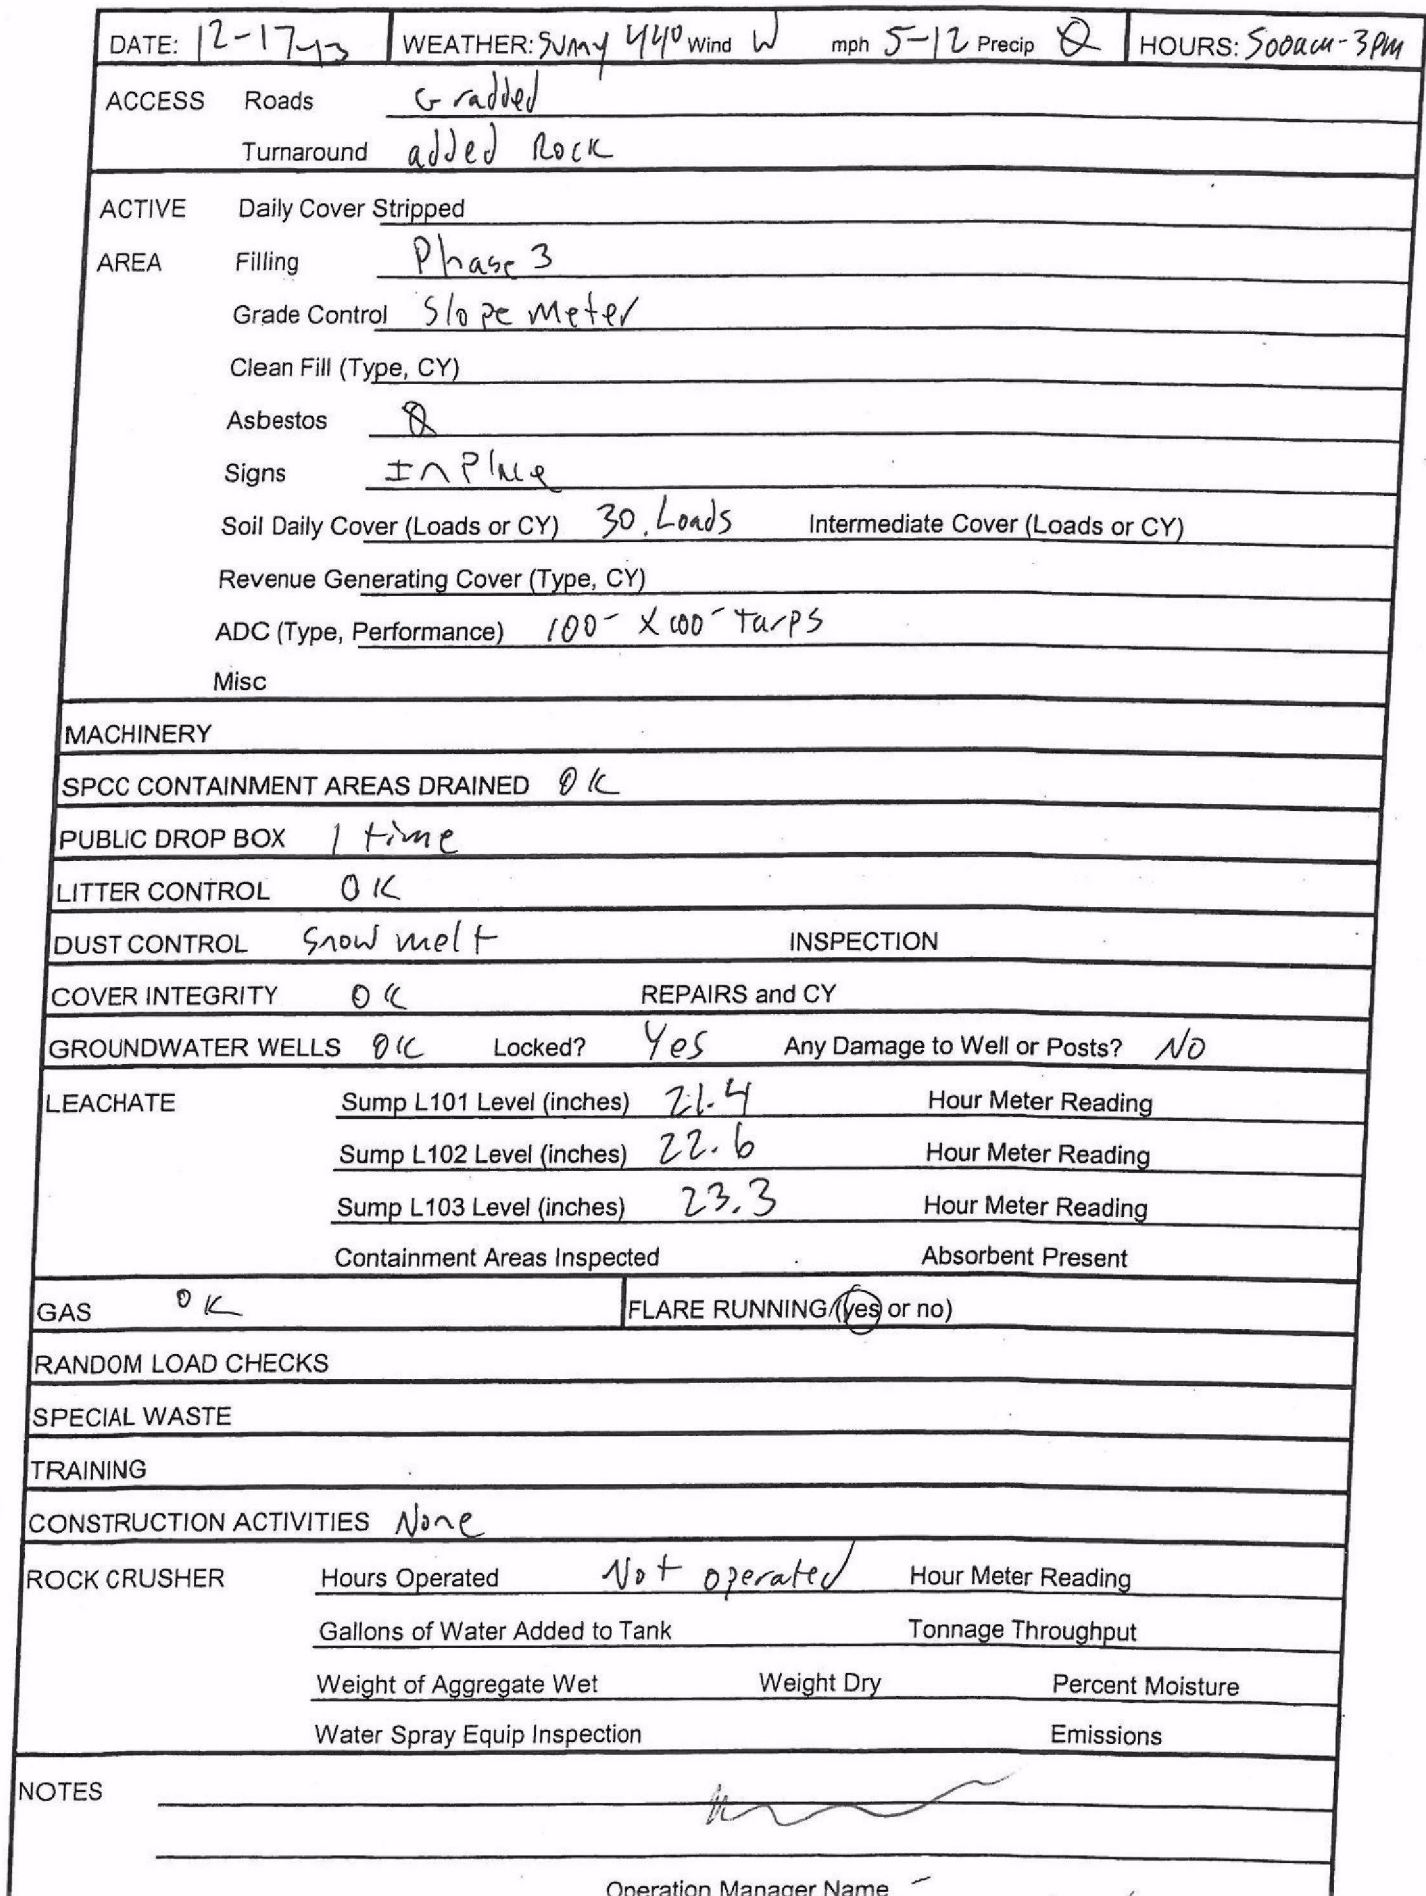 DATE: 12-17-13 WEATHER: Sunny 44° Wind W mph 5-12 Precip Ø HOURS: 500am-3pm
ACCESS Roads Gradded
Turnaround added Rock
ACTIVE Daily Cover Stripped
AREA Filling Phase 3
Grade Control Slope Meter
Clean Fill (Type, CY)
Asbestos Ø
Signs In Place
Soil Daily Cover (Loads or CY) 30. Loads Intermediate Cover (Loads or CY)
Revenue Generating Cover (Type, CY)
ADC (Type, Performance) 100- X 100- Tarps
Misc
MACHINERY
SPCC CONTAINMENT AREAS DRAINED OK
PUBLIC DROP BOX 1 time
LITTER CONTROL OK
DUST CONTROL Snow melt INSPECTION
COVER INTEGRITY OK REPAIRS and CY
GROUNDWATER WELLS OK Locked? Yes Any Damage to Well or Posts? NO
LEACHATE Sump L101 Level (inches) 21.4 Hour Meter Reading
Sump L102 Level (inches) 22.6 Hour Meter Reading
Sump L103 Level (inches) 23.3 Hour Meter Reading
Containment Areas Inspected Absorbent Present
GAS OK FLARE RUNNING (yes or no)
RANDOM LOAD CHECKS
SPECIAL WASTE
TRAINING
CONSTRUCTION ACTIVITIES None
ROCK CRUSHER Hours Operated Not operated Hour Meter Reading
Gallons of Water Added to Tank Tonnage Throughput
Weight of Aggregate Wet Weight Dry Percent Moisture
Water Spray Equip Inspection Emissions
NOTES
Operation Manager Name